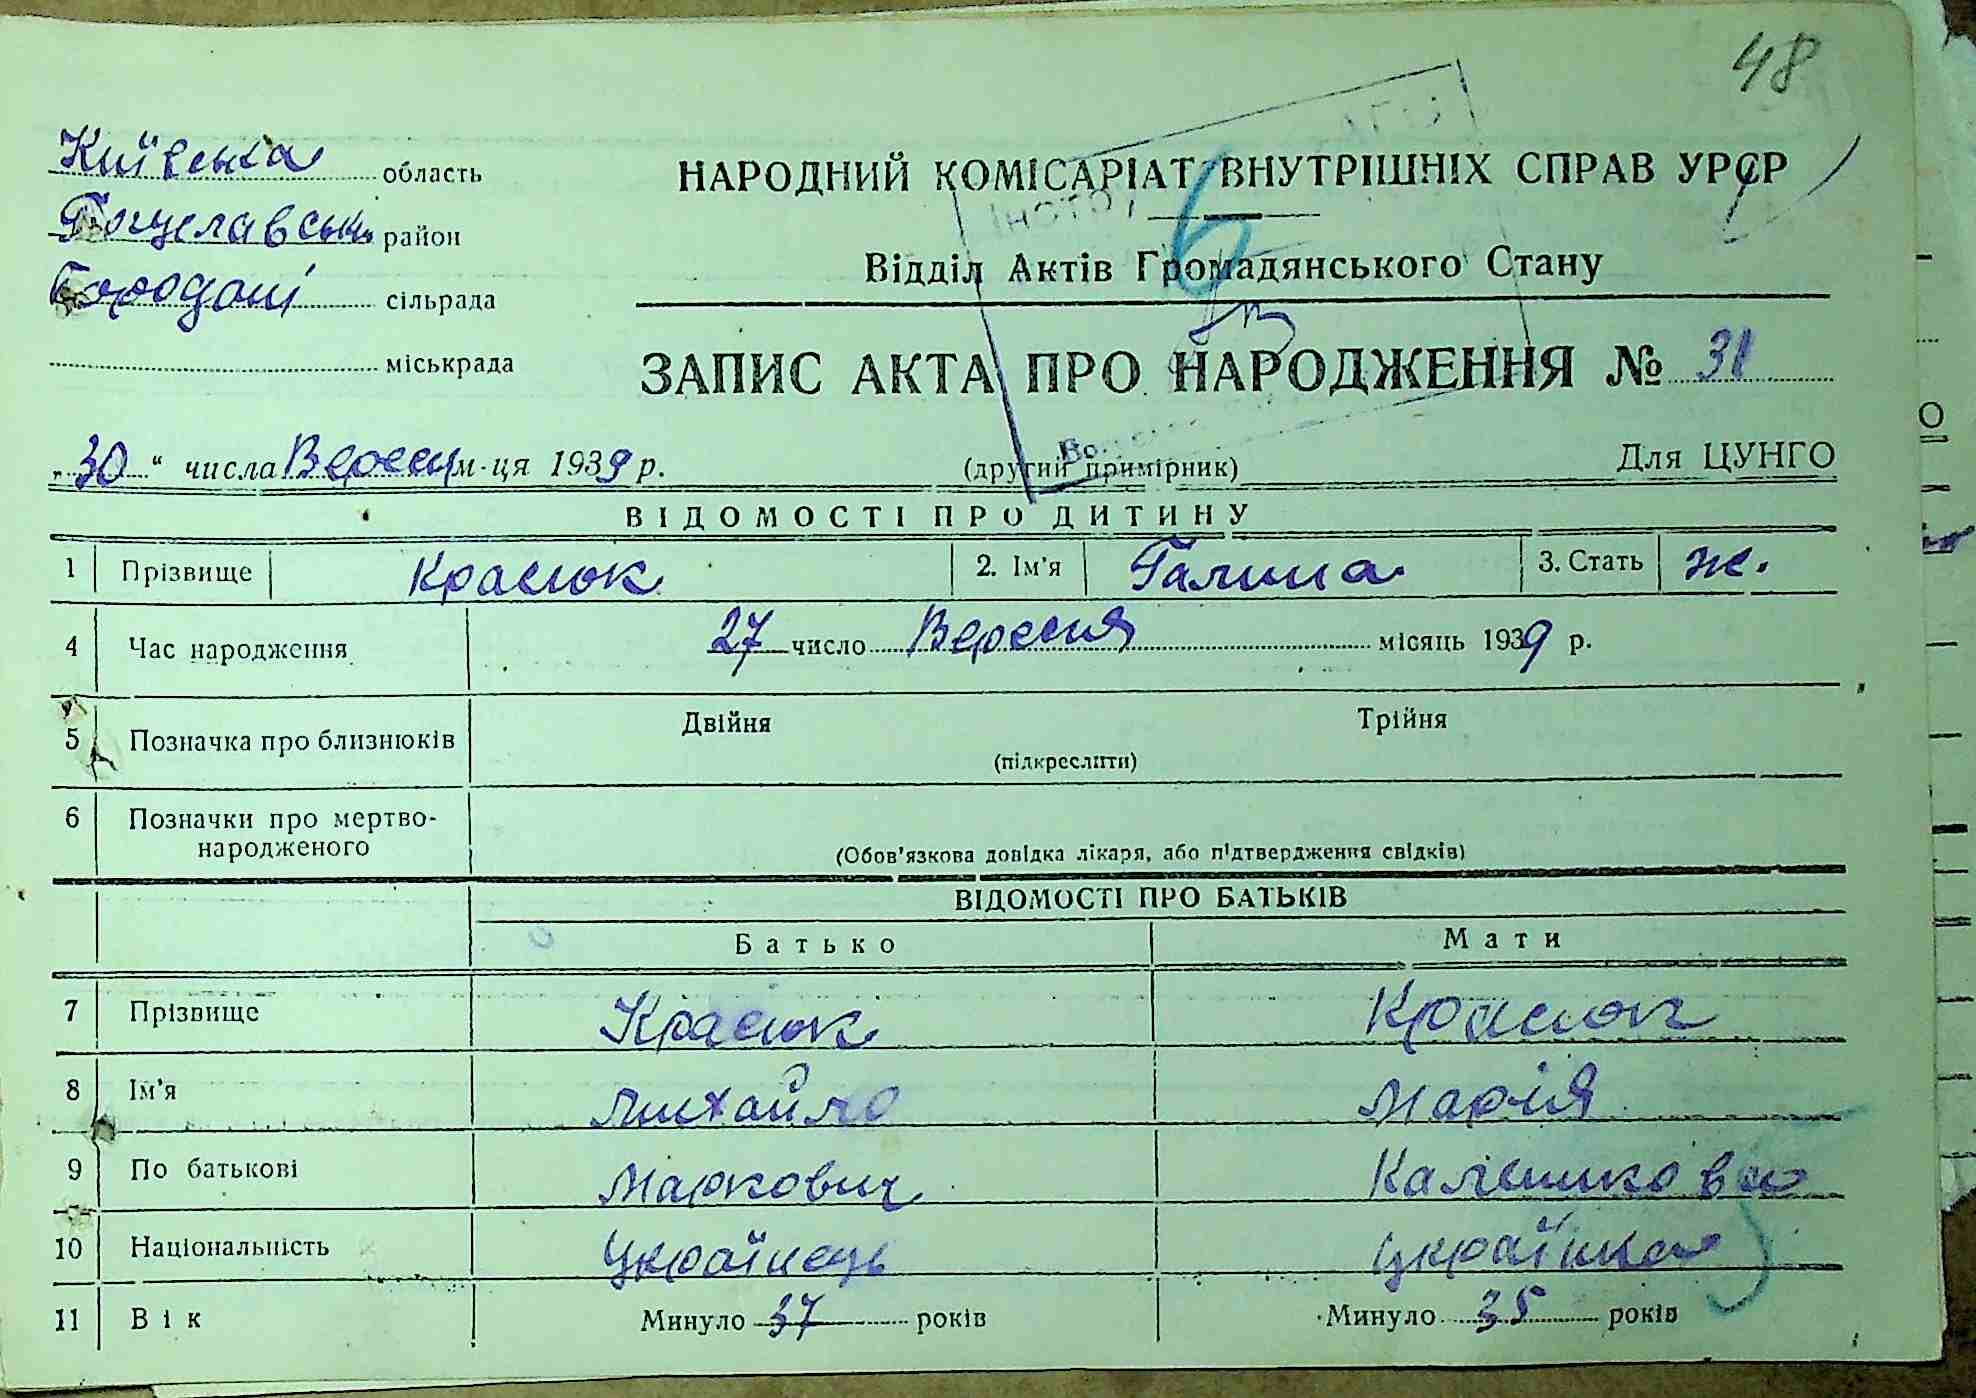 48
Київська область
Богуславськ. район
Бородані сільрада
міськрада
НАРОДНИЙ КОМІСАРІАТ ВНУТРІШНІХ СПРАВ УРСР
6
Відділ Актів Громадянського Стану
ЗАПИС АКТА ПРО НАРОДЖЕННЯ № 31
„30“ числа Вересня м-ця 1939 р.
(другий примірник)
Для ЦУНГО
ВІДОМОСТІ ПРО ДИТИНУ
1 Прізвище Красюк 2. Ім'я Галина 3. Стать ж.
4 Час народження 27 число Вересня місяць 1939 р.
5 Позначка про близнюків Двійня Трійня
(підкреслити)
6 Позначки про мертво-
народженого
(Обов'язкова довідка лікаря, або підтвердження свідків)
ВІДОМОСТІ ПРО БАТЬКІВ
Батько Мати
7 Прізвище Красюк Красюк
8 Ім'я Михайло Марія
9 По батькові Маркович
10 Національність Українець Українка
11 Вік Минуло 37 років Минуло 35 років